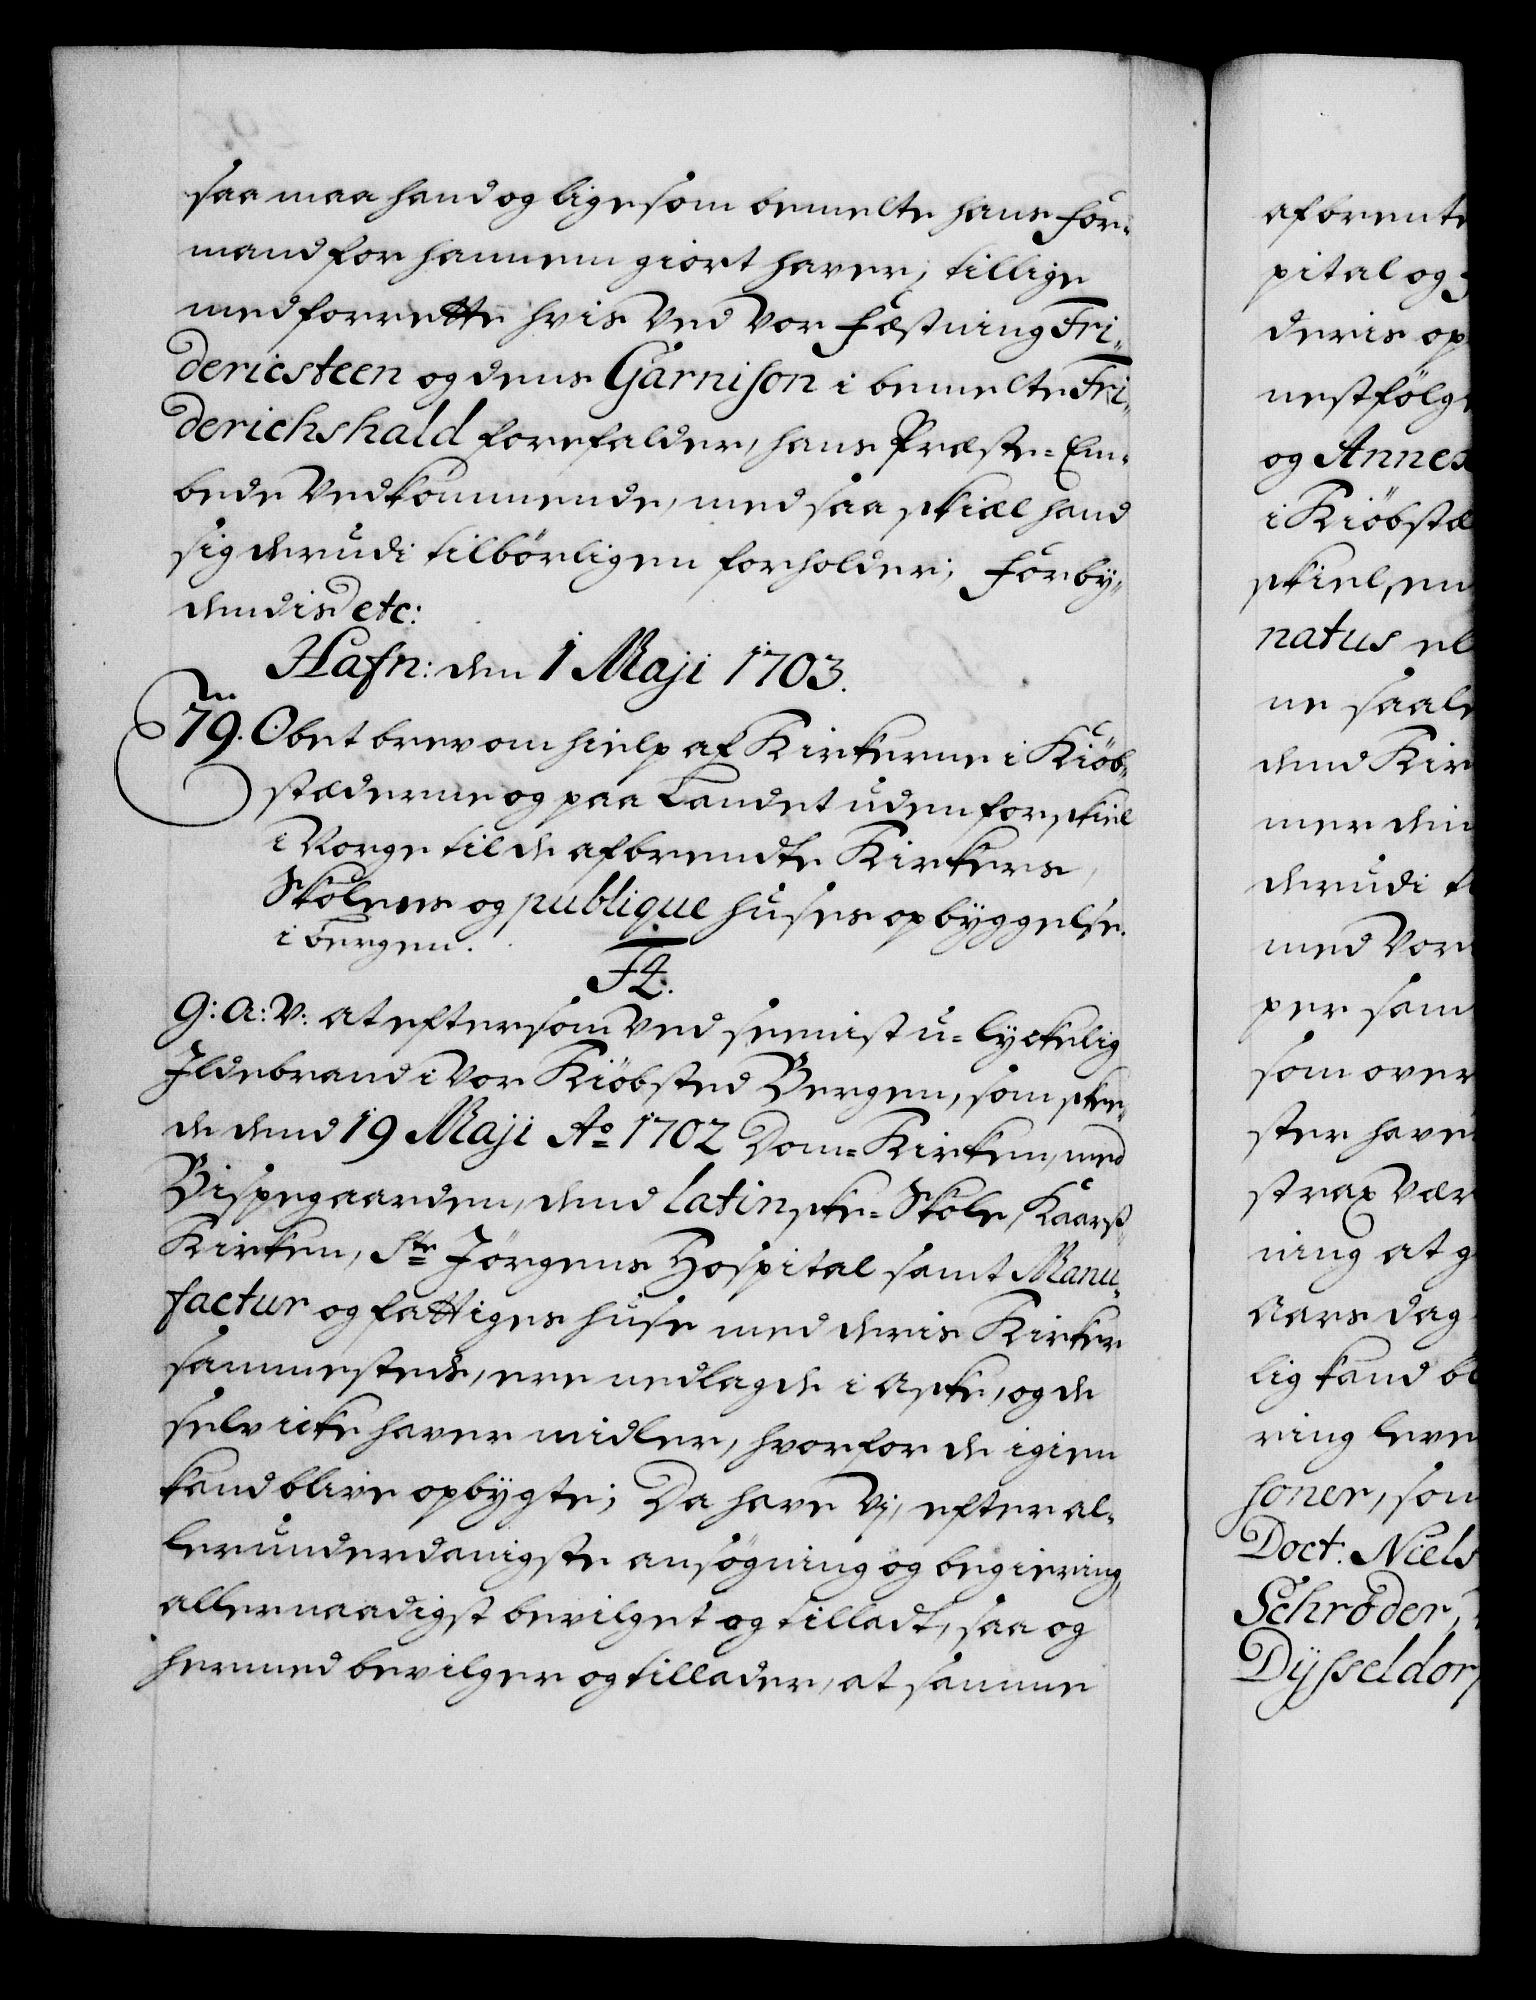 saa maa hand og ligesom bemelte hans for-
mand for hannem giort haver, tillige
med forrette hvis ved vor Fæstning Fri-
dericsteen og dens Garnison i bemelte Fri-
derichshald forefalder, hans Præste-Em-
bede vedkommende, med saa skiæl hand
sig derudi tilbörligen forholder; Forby-
dendis etc:
Hafn: den 1 Maji 1703.
79. Obet brev om hielp af Kirkerne i Kiöb-
stæderne og paa Landet uden forskiel
i Norge til de afbrendte Kirkers,
Skolens og publique huses opbyggelse
i Bergen.
F4.
G: A: V: at eftersom ved seeniste u-lyckelig
Ildebrand i vor Kiöbsted Bergen, som skee-
de dend 19 Maji Ao 1702 Dom-Kirken, med
Bispegaarden, dend latinske-Skole, Kaarß
Kirken, Ste Jörgens Hospital samt Manu-
factur og fattiges huse med deris Kirker
sammesteds, ere nedlagde i Aske, og de
selv icke haver midler, hvorfor de igien
kand blive opbygte; Da have Vj, efter al-
lerunderdanigste ansøgning og begiering,
allernaadigst bevilget og tilladt, saa og
hermed bevilger og tillader, at samme
afbrente
pital og
deris op
nestfölge
og Annex
i Kiöbstæ
skiel, en
natus el
ne saale
dend Kir
mer den
derudi
med Vor
per som
som over
ster have
strax vær
ning at g
Aars dag
lig kand bl
ring leve
soner, som
Doct. Niels
Schrøder,
Dÿsseldor